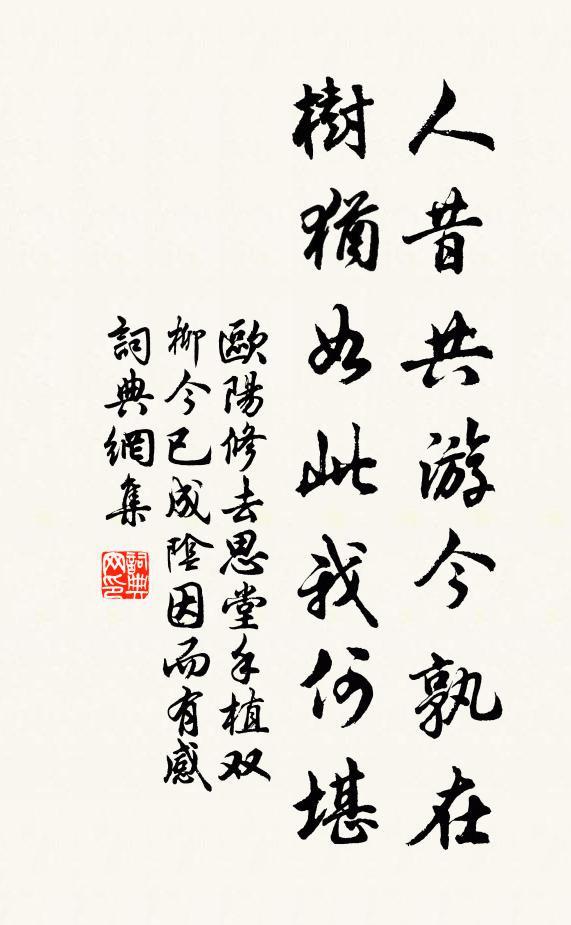 人昔共游今孰在
樹猶如此我何堪
歐陽修去思堂手植双
柳今已成陰因而有感
詞典網集
詞典
网印